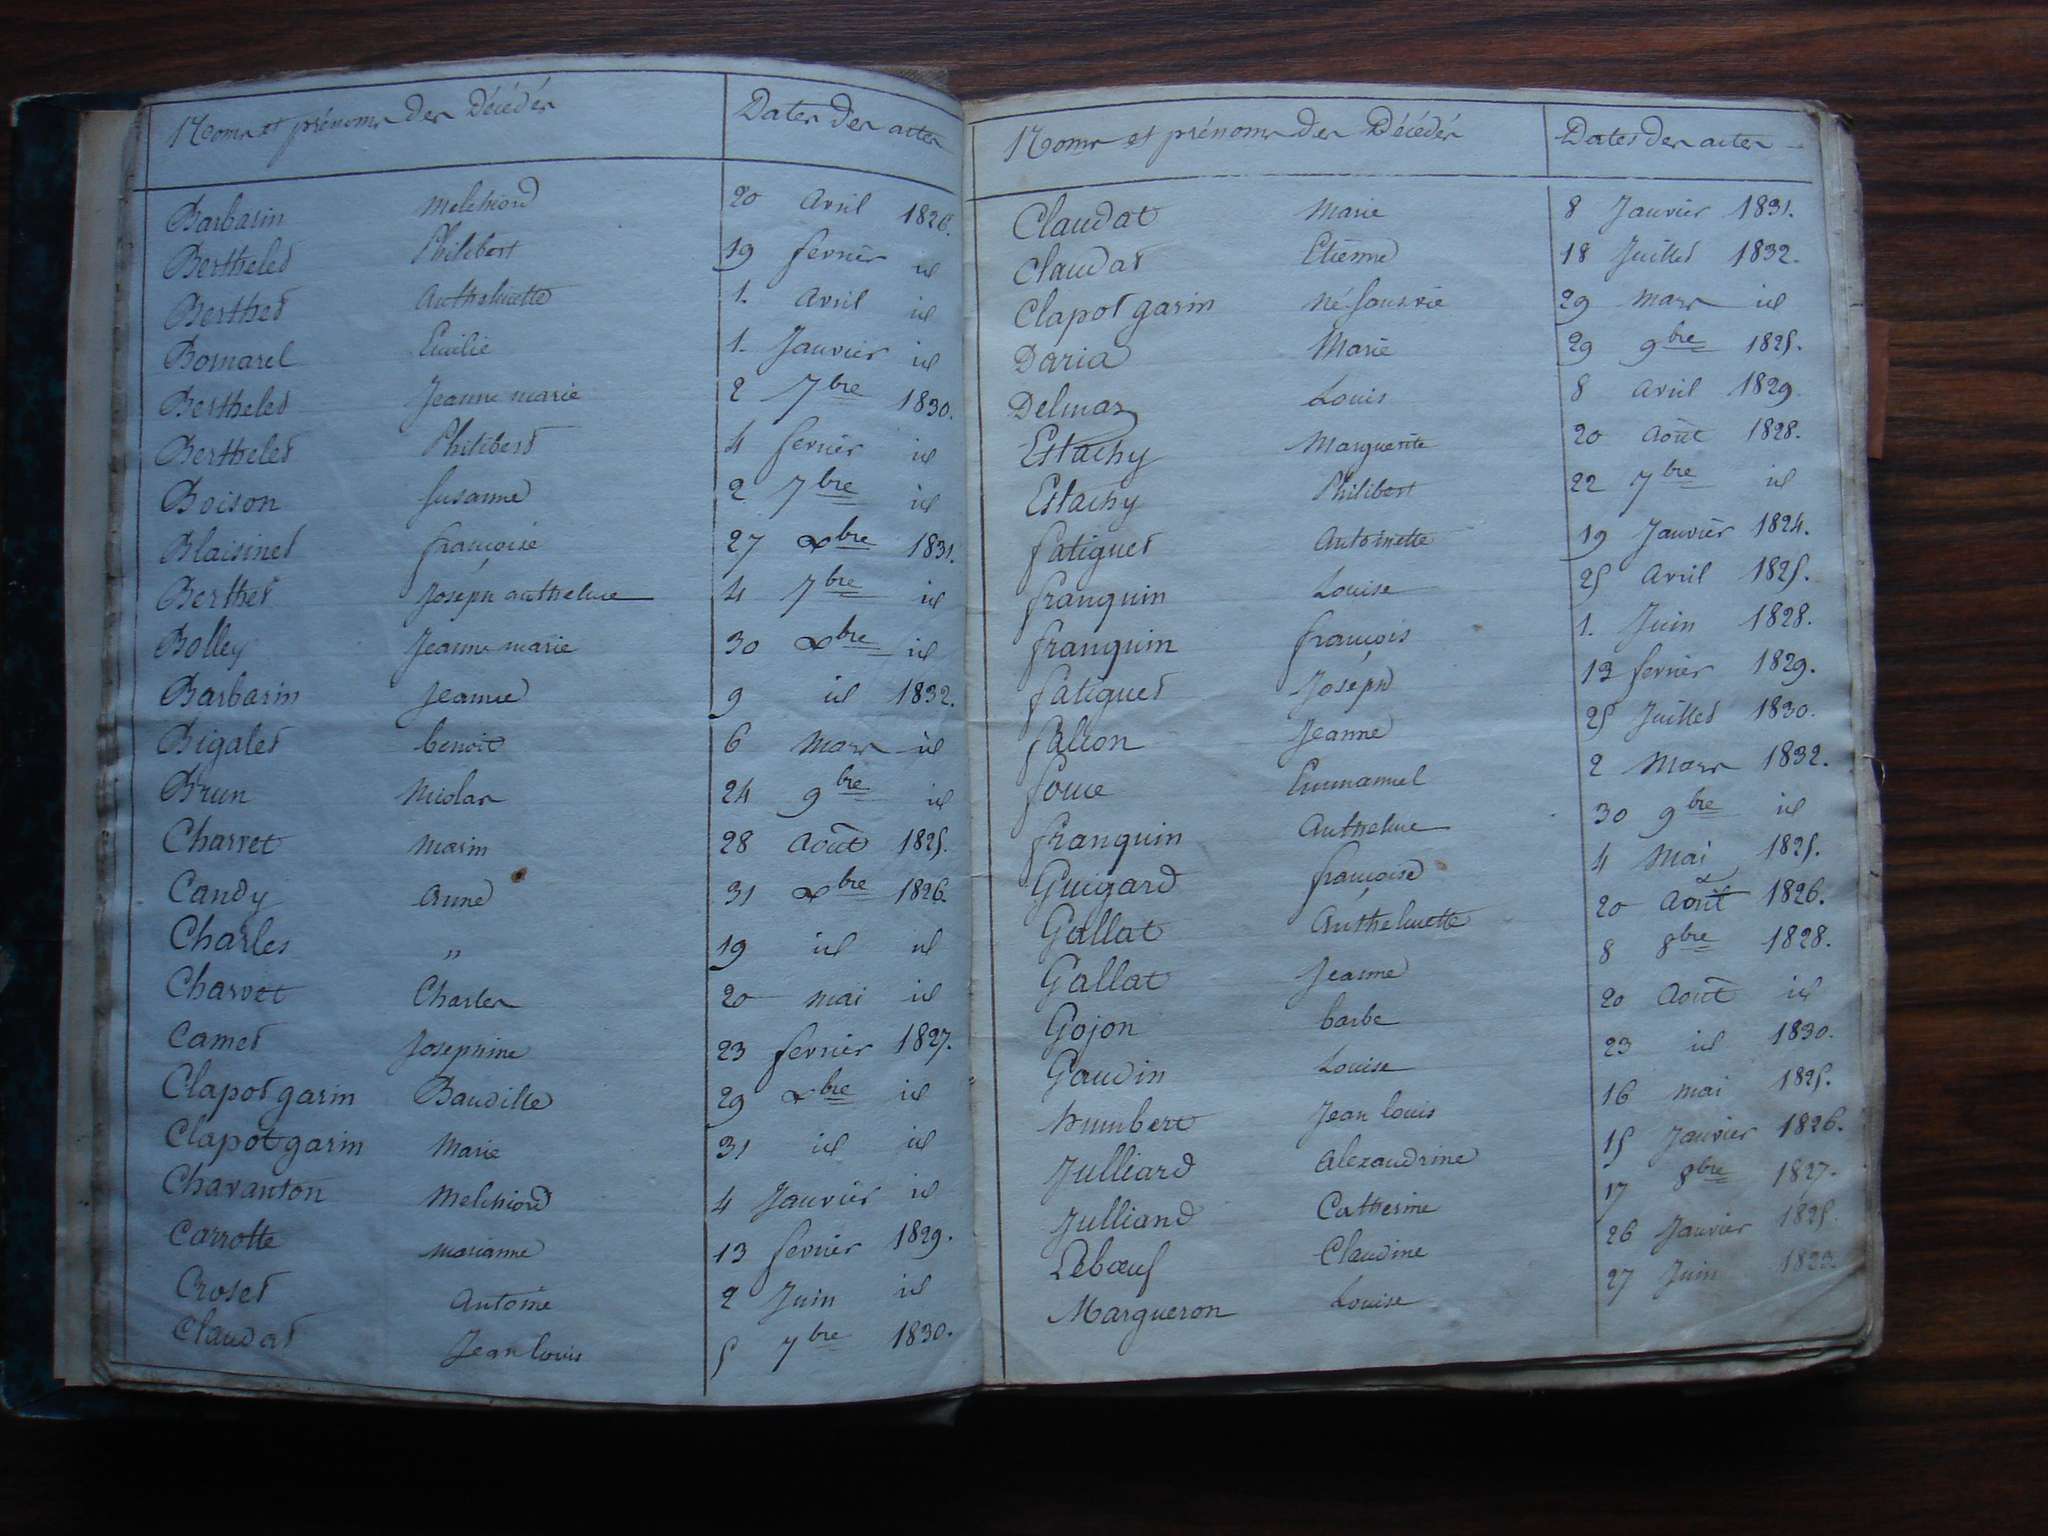 Noms et prénoms des Décédés Dates des actes
Barbarin Melchiord 20 Avril 1828.
Berthelet Philibert 19 fevrier id
Berthet Anthelmette 1. Avril id
Bomarel Emilie 1. Janvier id
Berthelet Jeanne marie 2 7bre 1830.
Berthelet Philibert 4 fevrier id
Boison Susanne 2 7bre id
Blaisinet françoise 27 Xbre 1831.
Berthet Joseph anthelme 4 7bre id
Bolley Jeanne marie 30 Xbre id
Barbarin Jeanne 9 id 1832.
Bigalet benoit 6 Mars id
Brun Nicolas 24 9bre id
Charvet Marin 28 Août 1825.
Candy Anne 31 Xbre 1826.
Charles " 19 id id
Charvet Charles 20 Mai id
Camet Josephine 23 fevrier 1827.
Clapot garin Baudille 29 Xbre id
Clapot garin Marie 31 id id
Chavanton Melchiord 4 Janvier id
Carrotte Marianne 13 fevrier 1829.
Croset Antoine 2 Juin id
Claudat Jean louis 5 7bre 1830.
Noms et prénoms des Décédés Dates des actes
Claudat Marie 8 Janvier 1831.
Claudat Etienne 18 Juillet 1832.
Clapot garin Né sans vie 29 Mars id
Daria Marie 29 9bre 1825.
Delmas Louis 8 Avril 1829
Estachy Marguerite 20 Août 1828.
Estachy Philibert 22 7bre id
fatiguet Antoinette 19 Janvier 1824.
franquin Louise 25 Avril 1825.
franquin françois 1. Juin 1828.
fatiguet Joseph 13 fevrier 1829.
falcon Jeanne 25 Juillet 1830.
Emmanuel 2 Mars 1832.
franquin Anthelme 30 9bre id
Guigard françoise 4 Mai 1825.
Gallat Anthelmette 20 Août 1826.
Gallat Jeanne 8 8bre 1828.
Gojon barbe 20 Août id
Gaudin Louise 23 id 1830.
humbert Jean louis 16 Mai 1825.
Julliard Alexandrine 15 Janvier 1826.
Julliand Catherine 17 8bre 1827.
Lebœuf Claudine 26 Janvier 1825.
Margueron Louise 27 Juin